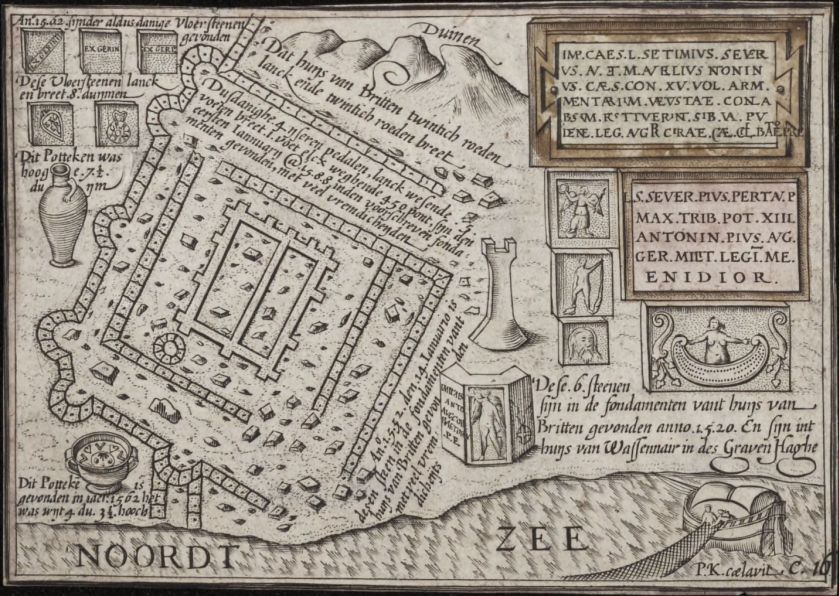 An. 1562 sijnder aldusdanige Vloersteenen
gevonden
EX GERIN
EX GERI
Dese Vloersteenen lanck
en breet .8. duijmen
Dit Potteken was
hoog e. 7.½.
du ijm
Duinen
Dat huijs van Britten twintich roeden
lanck ende twintich roeden breet.
Dusdanighe .4. ijseren pedalen, lanck wesende .5.
voeten breet .1. voet elck weghende 450 pont, sijn den
eersten Januarij @ 1588 inden voorschreven fonda
menten gevonden, met veel vremdicheyden
IMP. CAES. L. SETIMIVS. SEVER
VS. CÆS. CON. XV. VOL. ARM.
L. S. SEVER. PIVS. PERTN. P
MAX. TRIB. POT. XIII.
ANTONIN. PIVS. AVG.
GER. MILIT. LEGI. ME.
ENIDIOR.
An.o 1552. den .24. Januario is
desen steen in de fondamenten vant
huijs van Britten gevon den
met veel vrem
dicheits
Dese .6. steenen
sijn in de fondamenten vant huijs van
Britten gevonden anno. 1.5.20. En sijn int
huijs van Wassennaur in des Graven Haghe
Dit Potteke is
gevonden in jaer. 1502 het
was wijt 4. du. 3½. hooch
NOORDT ZEE
P.K. cælavit.